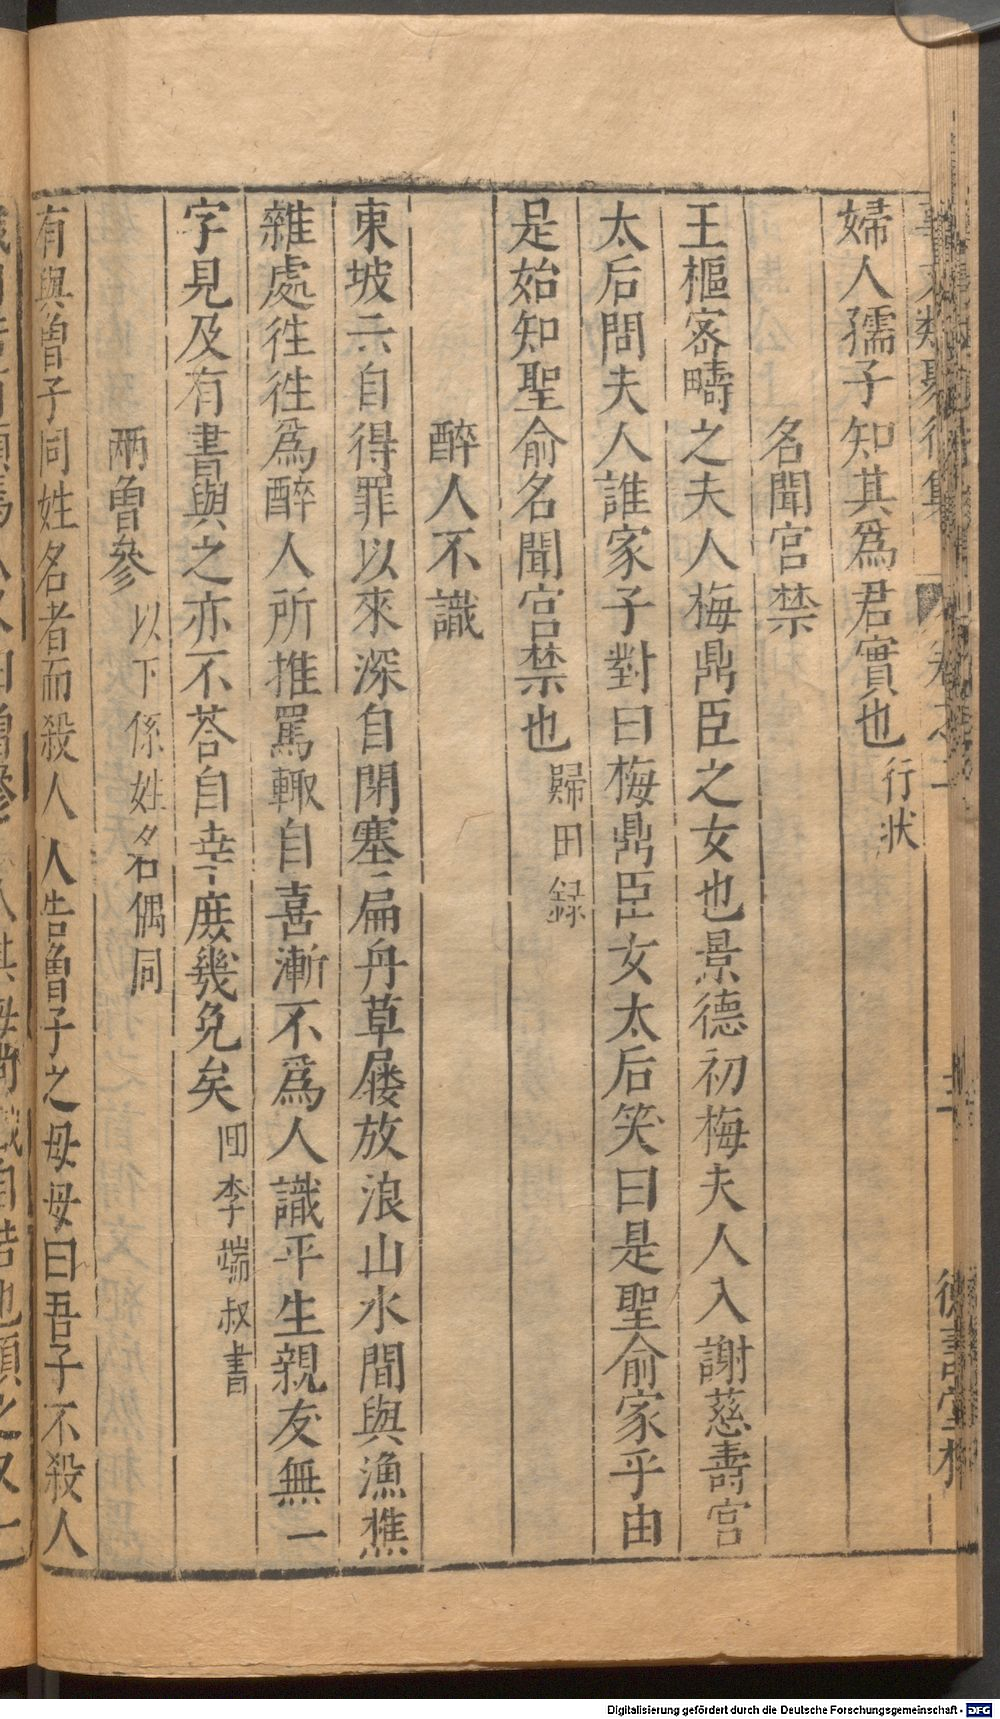 婦人孺子知其爲君實也行状
名聞宫禁
王樞宻疇之夫人梅鼎臣之女也景德初梅夫人入謝慈壽宫
太后問夫人誰家子對曰梅鼎臣女太后笑曰是聖俞家乎由
是始知聖俞名聞宫禁也歸田録
醉人不識
東坡云自得罪以來深自閉塞扁舟草屨放浪山水間與漁樵
雜處徃徃爲醉人所推罵輙自喜漸不爲人識平生親友無一
字見及有書與之亦不荅自幸庶幾免矣囬李端叔書
兩曾參以下係姓名偶同
有與曾子同姓名者而殺人人告曾子之母母曰吾子不殺人
Digitalisierung gefördert durch die Deutsche Forschungsgemeinschaft - DFG